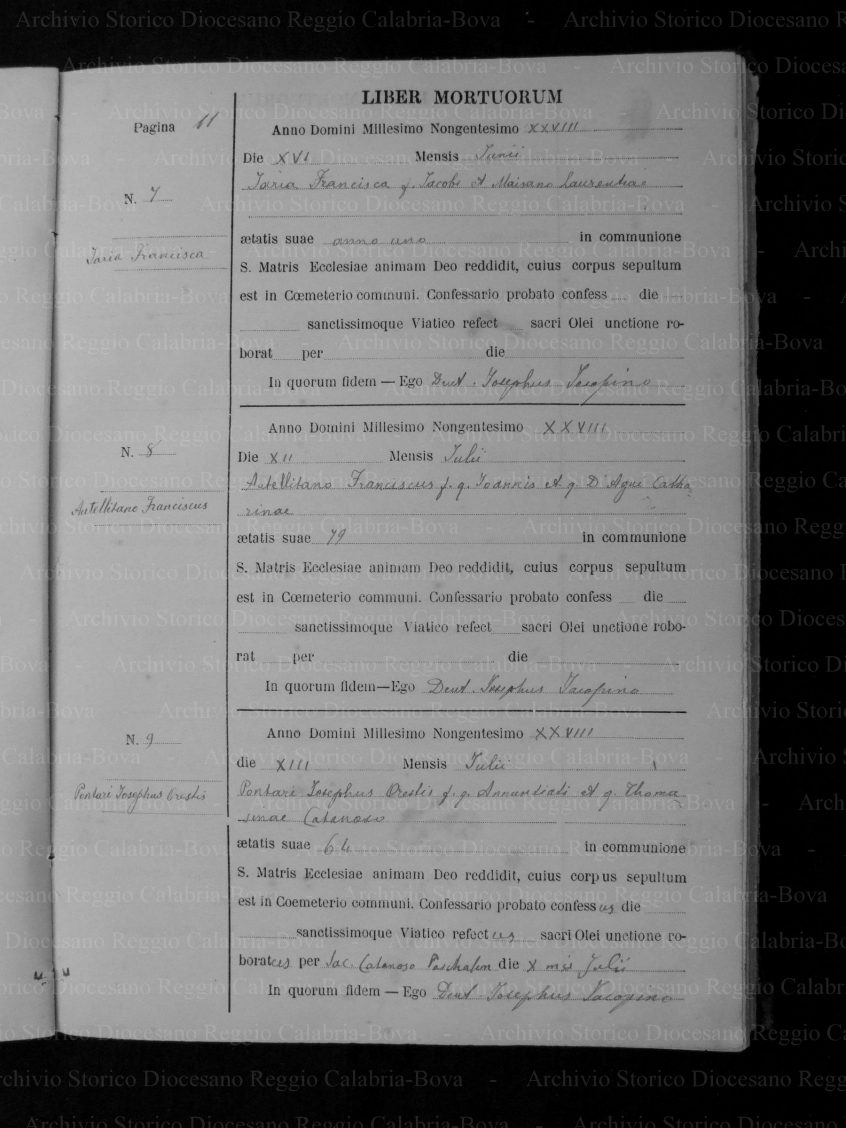 LIBER MORTUORUM
Pagina 11
Anno Domini Millesimo Nongentesimo XXVIII
Die XVI Mensis Junii
N. 7
Iaria Francisca f. Iacobi et Maisano Laurentiae
Iaria Francisca
ætatis suae anno uno in communione
S. Matris Ecclesiae animam Deo reddidit, cuius corpus sepultum
est in Cœmeterio communi. Confessario probato confess die
sanctissimoque Viatico refect sacri Olei unctione ro-
borat per die
In quorum fidem — Ego Deut. Iosephus Iacopino
Anno Domini Millesimo Nongentesimo XXVIII
N. 8
Die XII Mensis Iulii
Autellitano Franciscus f. q. Ioannis et q. D'Agui Catha
Autellitano Franciscus
rinae
ætatis suae 79 in communione
S. Matris Ecclesiae animam Deo reddidit, cuius corpus sepultum
est in Cœmeterio communi. Confessario probato confess die
sanctissimoque Viatico refect sacri Olei unctione robo-
rat per die
In quorum fidem—Ego Deut. Iosephus Iacopino
Anno Domini Millesimo Nongentesimo XXVIII
N. 9
die XIII Mensis Iulii
Pontari Iosephus Orestis f. q. Annunziati et q. Thoma
Pontari Iosephus Orestis
sinae Catanoso
ætatis suae 64 in communione
S. Matris Ecclesiae animam Deo reddidit, cuius corpus sepultum
est in Coemeterio communi. Confessario probato confessus die
sanctissimoque Viatico refectus sacri Olei unctione ro-
boratus per Sac. Catanoso Paschalem die X mis Julii
In quorum fidem — Ego Deut Iosephus Iacopino
Archivio Storico Diocesano Reggio Calabria-Bova